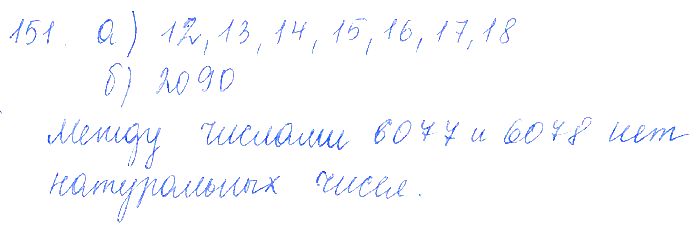 151. а) 12, 13, 14, 15, 16, 17, 18
б) 2090
Между числами 6077 и 6078 нет
натуральных чисел.